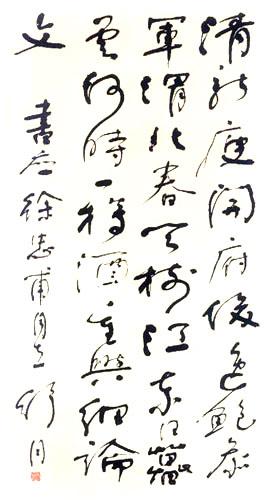 清新庾開府俊逸鮑參
軍渭北春天樹江東日暮
雲何時一樽酒重與細論
文 書應徐忠甫同志 舒同